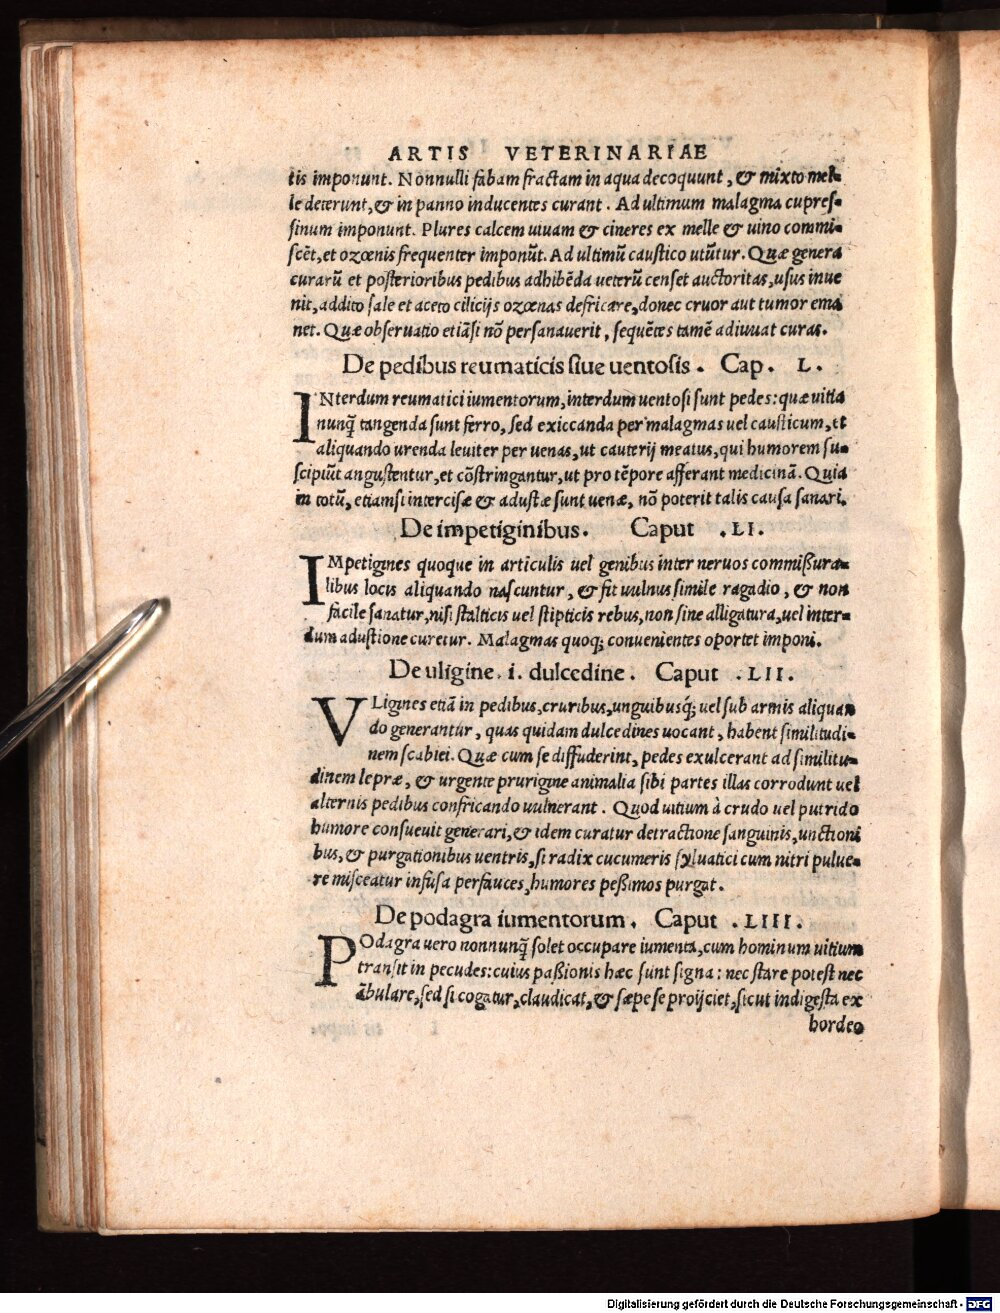 ARTIS VETERINARIAE
tis imponunt. Nonnulli fabam fractam in aqua decoquunt, & mixto mel-
le deterunt, & in panno inducentes curant. Ad ultimum malagma cupres-
sinum imponunt. Plures calcem uiuam & cineres ex melle & uino commi-
scẽt, et ozœnis frequenter imponũt. Ad ultimũ caustico utũtur. Quæ genera
curarũ et posterioribus pedibus adhibẽda ueterũ censet auctoritas, usus inue
nit, addito sale et aceto cilicijs ozœnas defricare, donec cruor aut tumor ema
net. Quæ obseruatio etiãsi nõ persanauerit, sequẽtes tamẽ adiuuat curas.
De pedibus reumaticis siue uentosis. Cap. L.
INterdum reumatici iumentorum, interdum uentosi sunt pedes: quæ uitia
nunq̃ tangenda sunt ferro, sed exiccanda per malagmas uel causticum, et
aliquando urenda leuiter per uenas, ut cauterij meatus, qui humorem su-
scipiũt angustentur, et cõstringantur, ut pro tẽpore afferant medicinã. Quia
in totũ, etiamsi intercisæ & adustæ sunt uenæ, nõ poterit talis causa sanari.
De impetiginibus. Caput .LI.
IMpetigines quoque in articulis uel genibus inter neruos commißura-
libus locis aliquando nascuntur, & fit uulnus simile ragadio, & non
facile sanatur, nisi stalticis uel stipticis rebus, non sine alligatura, uel inter-
dum adustione curetur. Malagmas quoq; conuenientes oportet imponi.
De uligine .i. dulcedine. Caput .LII.
VLigines etiã in pedibus, cruribus, unguibusq́; uel sub armis aliquan
do generantur, quas quidam dulcedines uocant, habent similitudi-
nem scabiei. Quæ cum se diffuderint, pedes exulcerant ad similitu-
dinem lepræ, & urgente prurigine animalia sibi partes illas corrodunt uel
alternis pedibus confricando uulnerant. Quod uitium à crudo uel putrido
humore consueuit generari, & idem curatur detractione sanguinis, unctioni
bus, & purgationibus uentris, si radix cucumeris syluatici cum nitri pulue-
re misceatur infusa per fauces, humores peßimos purgat.
De podagra iumentorum. Caput .LIII.
POdagra uero nonnunq̃ solet occupare iumenta, cum hominum uitium
transit in pecudes: cuius paßionis hæc sunt signa: nec stare potest nec
ãbulare, sed si cogatur, claudicat, & sæpe se proijciet, sicut indigesta ex
hordeo
Digitalisierung gefördert durch die Deutsche Forschungsgemeinschaft - DFG